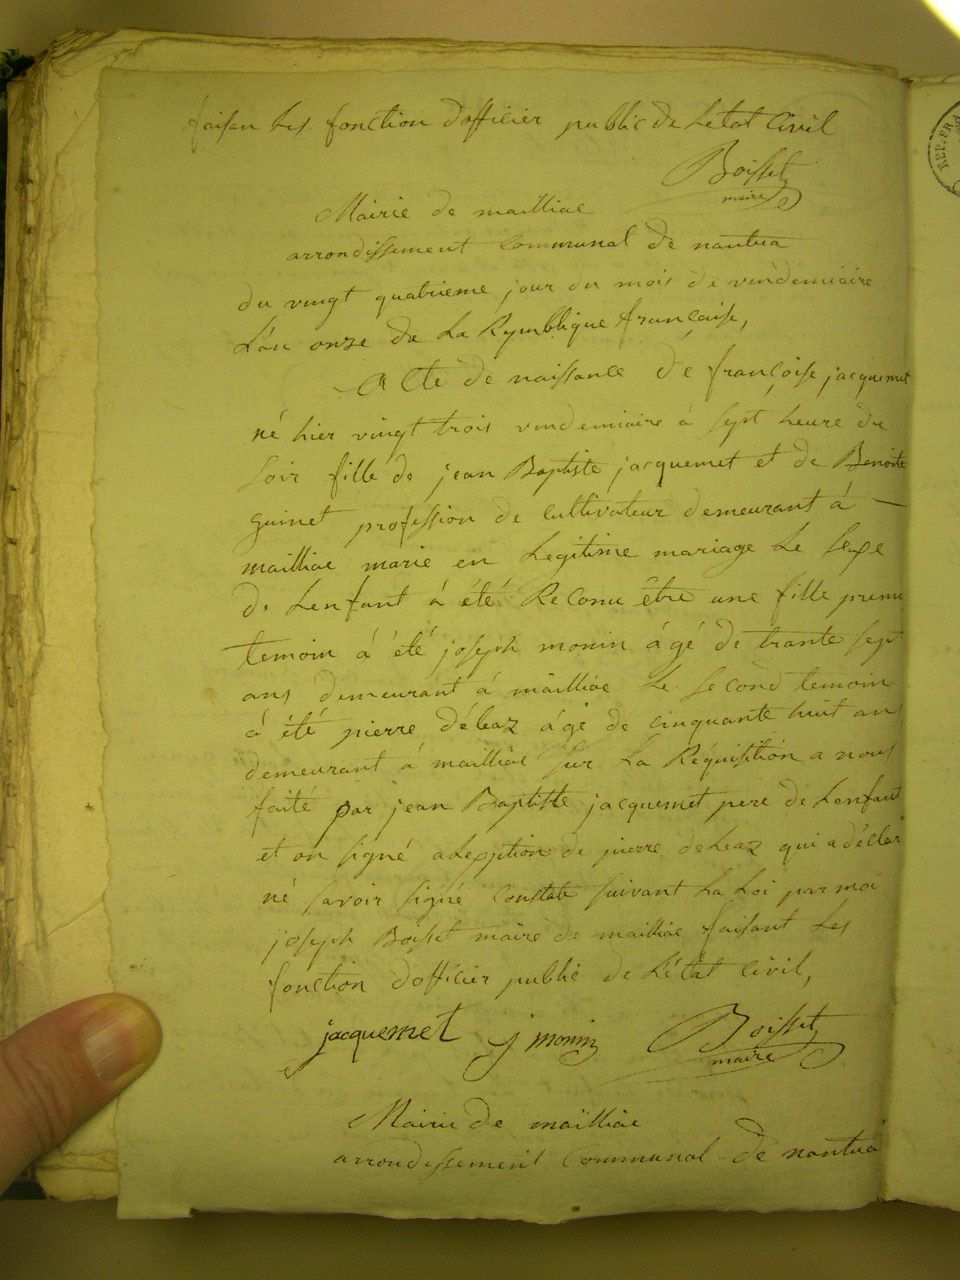 faisan les fonction dofficier public de Letat Civil
Boisset
maire
Mairie de mailliac
arrondissement Communal de nantua
du vingt quatrieme jour du mois de vendemiaire
L'an onze de La Republique française,
Acte de naissance de françoise jacquemet
né hier vingt trois vendemiaire à sept heure du
soir fille de jean Baptiste jacquemet et de Benoite
guinet profession de cultivateur demeurant à
mailliac marié en Legitime mariage Le sexe
de Lenfant à été Reconu être une fille premie
temoin à été joseph monin âgé de trante sept
ans demeurant à mailliac Le second temoin
à été pierre déleaz âgé de cinquante huit ans
demeurant à mailliac sur La Réquisition a nous
faite par jean Baptiste jacquemet pere de Lenfant
et on signé adeseption de pierre deleaz qui a déclar
né savoir signé Constaté suivant La Loi par moi
joseph Boisset maire de mailliac faisant Les
fonction dofficier public de L'état Civil,
jacquemet j monin Boisset
maire
Mairie de mailliac
arrondissement Communal de nantua
REP. FRA